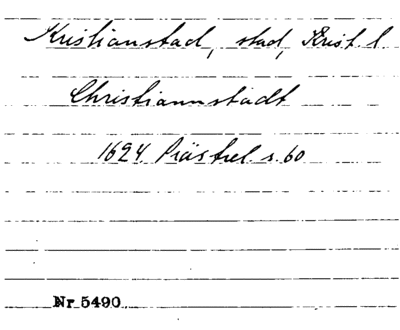 Kristianstad, stad, Krist. l
Christiannstadt
1624 Prästrel s. 60
Nr 5490